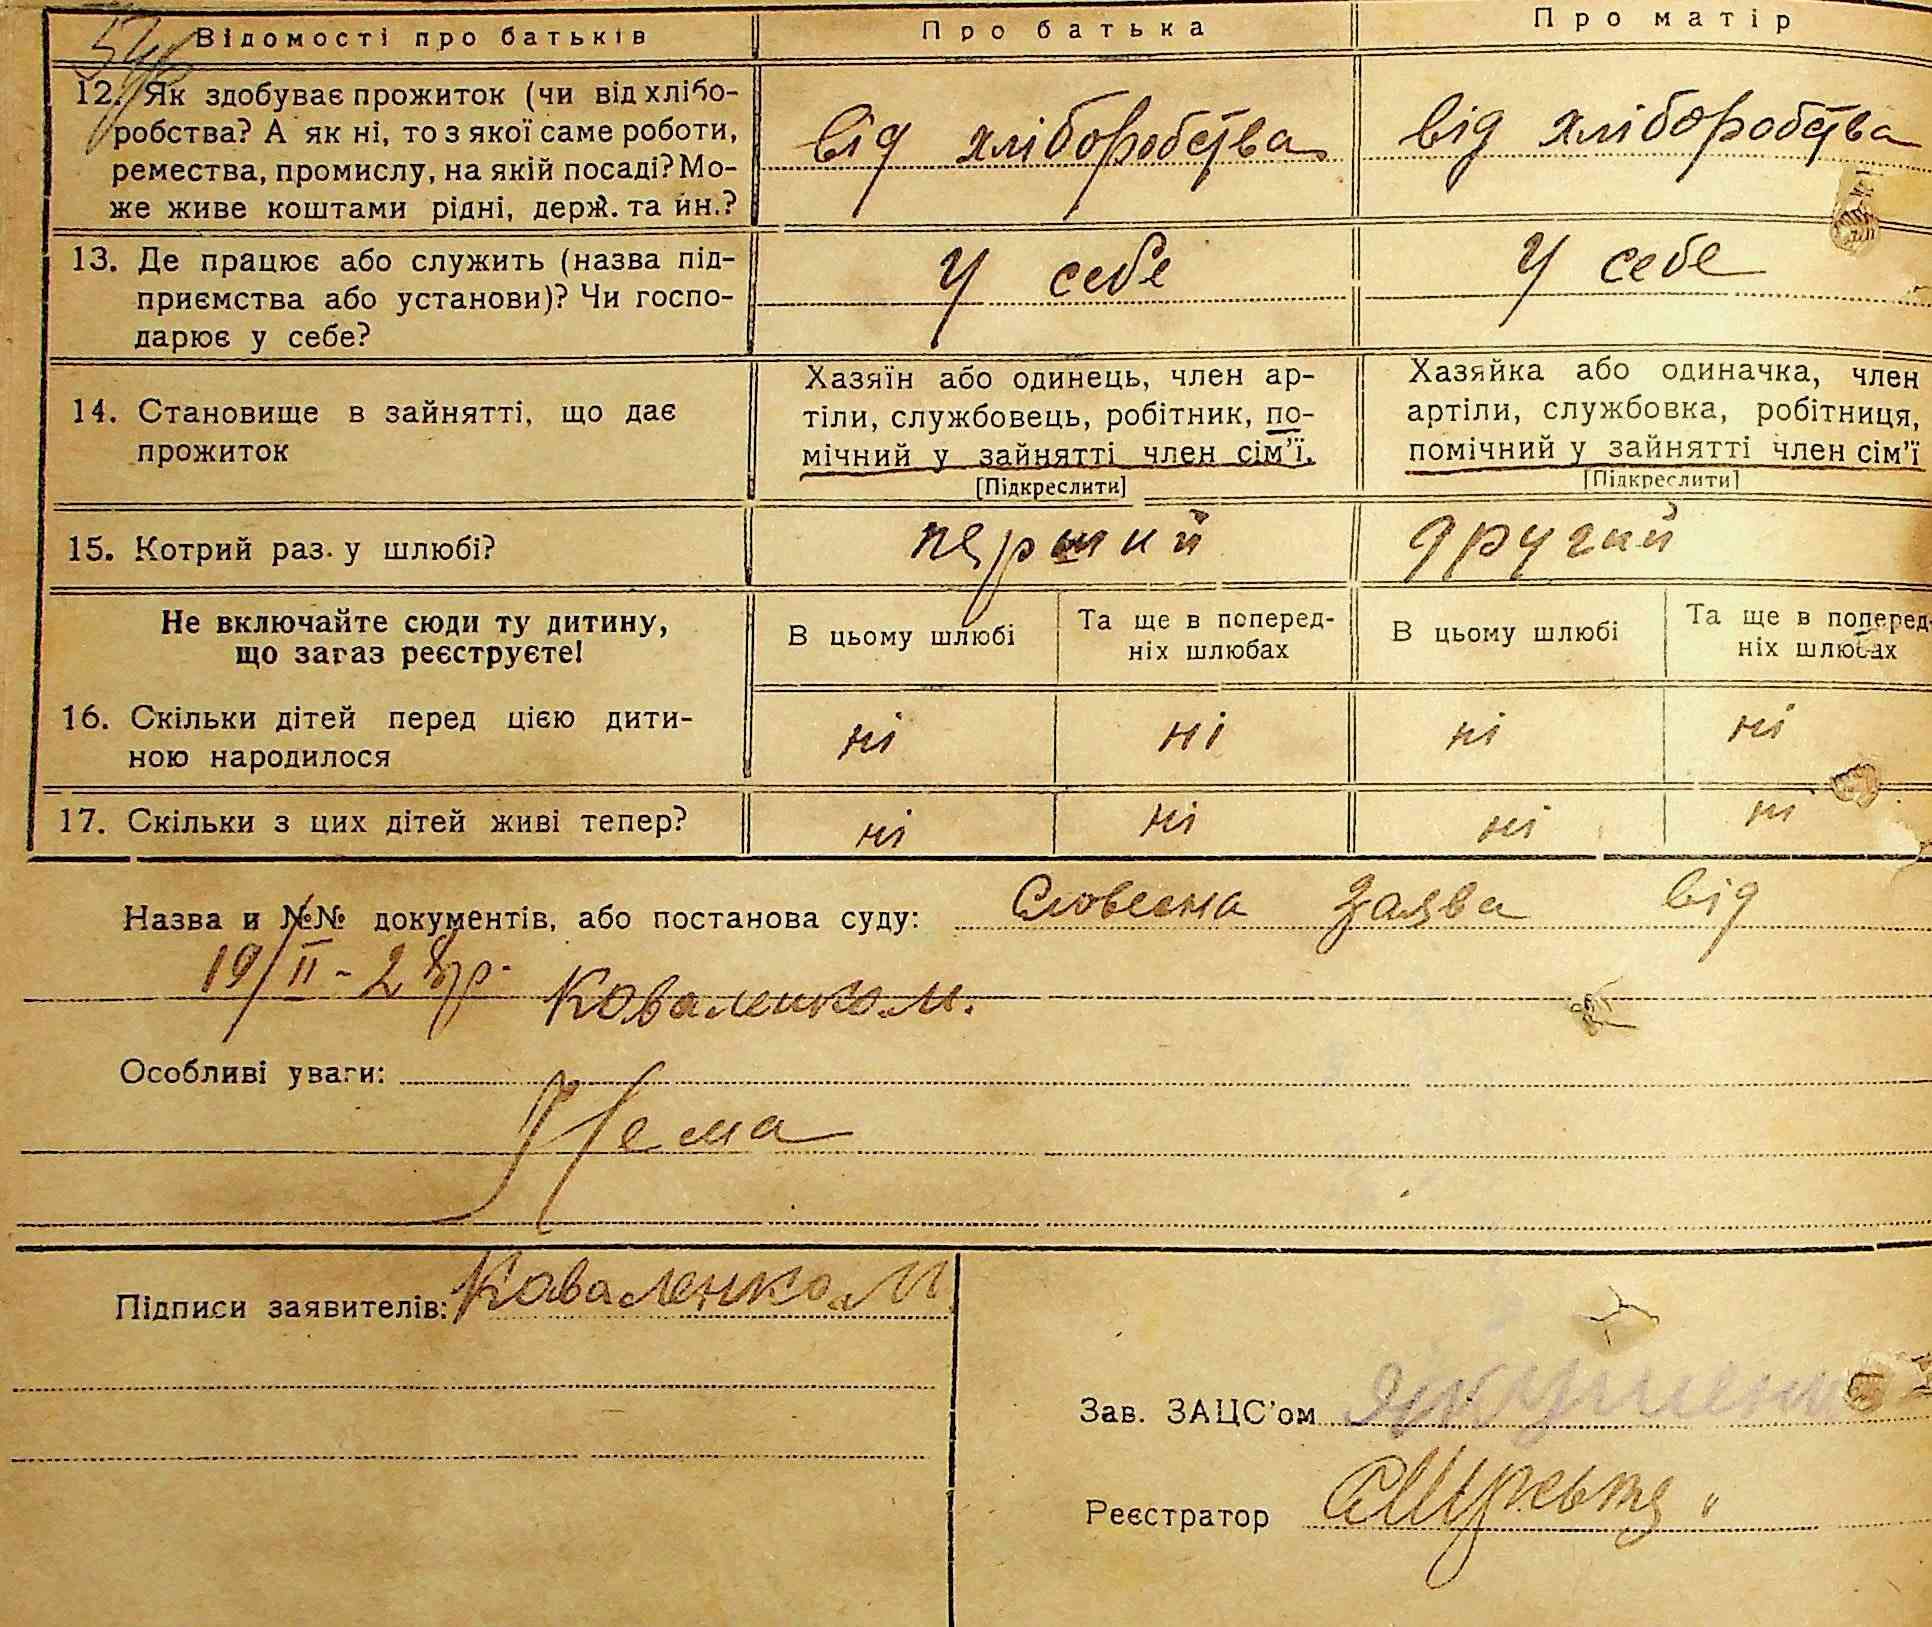 Відомості про батьків Про батька Про матір
12. Як здобуває прожиток (чи від хлібо-
робства? А як ні, то з якої саме роботи,
ремества, промислу, на якій посаді? Мо-
же живе коштами рідні, держ. та ин.?
від хліборобства від хліборобства
13. Де працює або служить (назва під-
приємства або установи)? Чи госпо-
дарює у себе?
У себе У себе
14. Становище в зайнятті, що дає
прожиток
Хазяїн або одинець, член ар-
тіли, службовець, робітник, по-
мічний у зайнятті член сім'ї.
[Підкреслити]
Хазяйка або одиначка, член
артіли, службовка, робітниця,
помічний у зайнятті член сім'ї
[Підкреслити]
15. Котрий раз у шлюбі? перший другий
Не включайте сюди ту дитину,
що зараз реєструєте!
В цьому шлюбі
Та ще в поперед-
ніх шлюбах
В цьому шлюбі
Та ще в поперед-
ніх шлюбах
16. Скільки дітей перед цією дити-
ною народилося
ні ні ні ні
17. Скільки з цих дітей живі тепер? ні ні ні ні
Назва и №№ документів, або постанова суду: Словесна заява від
19/II - 28р. Коваленко М.
Особливі уваги:
Нема
Підписи заявителів: Коваленко М.
Зав. ЗАЦС'ом
Реєстратор